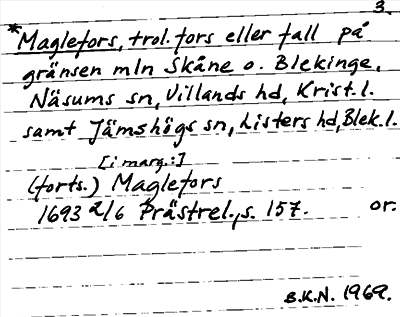 3.
*Maglefors, trol. fors eller fall på
gränsen mln Skåne o. Blekinge.
Näsums sn, Villands hd, Krist. l.
samt Jämshögs sn, Listers hd, Blek. l.
[i marg.:]
(forts.) Maglefors
1693 2/6 Prästrel., s. 157. or.
B.K.N. 1969.